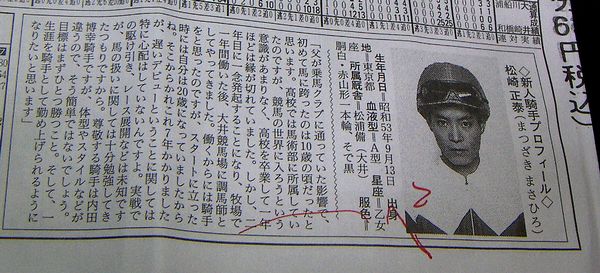 ◇新人騎手プロフィール◇
松崎 正泰(まつざき まさひろ)
生年月日=昭和53年9月13日 出身
地=東京都 血液型=A型 星座=乙女
座 所属厩舎=松浦備(大井) 服色=
胴白・赤山形一本輪、そで黒
「父が乗馬クラブに通っていた影響で、
初めて馬に跨ったのは10歳の頃だったと
思います。高校では馬術部に所属してい
たのですが、競馬の世界に入ろうという
意識があまりなく、高校を卒業して一年
ほどは縁が切れていました。しかし、2
年目に一念発起することになり、牧場で
一年間働いた後、大井競馬場に調馬師と
してやってきました。働くからには騎手
をと思ったのですが、スタートに立った
時には自分は20歳になっていましたから
ね。そこからかれこれ7年かかりました
が、遅いデビューということに関しては
特に心配していないんですよ。実戦で
の駆け引き、レース展開などは未知です
が、馬の扱いに関しては十分勉強してき
たつもりですから。尊敬する騎手は内田
博幸騎手ですが、体型やスタイルなどが
違うので、そう簡単ではないでしょう。
目標はまずひとつ勝つこと。そして、一
生涯を騎手として勤め上げられるように
なりたいと思います」
6円税込)